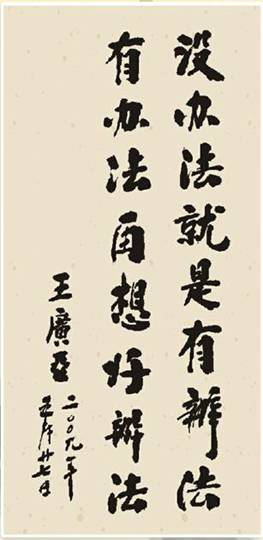 没办法就是有辦法
有办法再想好辦法
王廣亞
二〇〇九年
五月廿七日